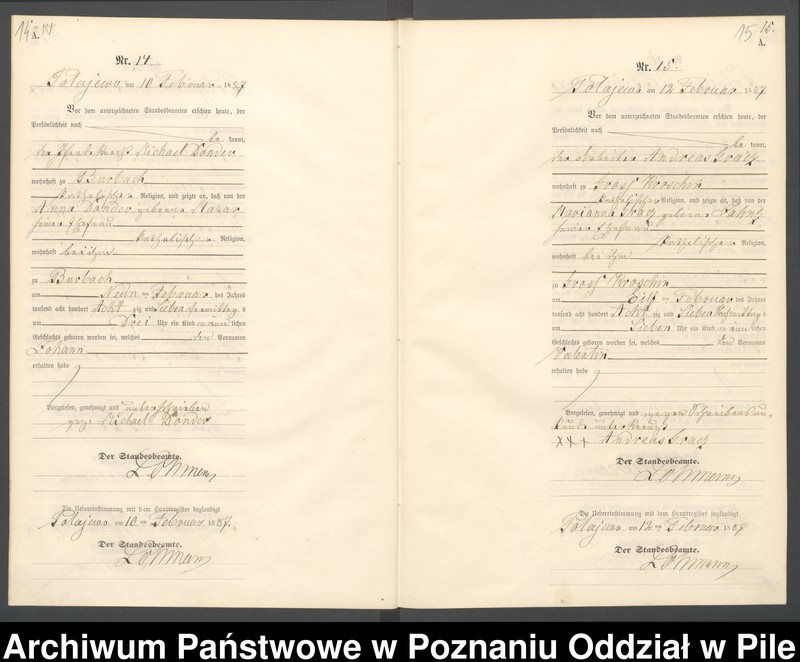 14
A.
Nr. 14
Polajewo am 10 Februar 1887
Vor dem unterzeichneten Standesbeamten erschien heute, der
Persönlichkeit nach
be kannt,
der Pferdeknecht Michael Donder
wohnhaft zu Burbach
katholischer Religion, und zeigte an, daß von der
Anna Donder geborene Mazur
seiner Ehefrau
katholischer Religion,
wohnhaft bei ihm
zu Burbach
am Neun ten Februar des Jahres
tausend acht hundert Acht zig und Sieben Vormittag s
um Drei Uhr ein Kind männ lichen
Geschlechts geboren worden sei, welches den Vornamen
Johann
erhalten habe
Vorgelesen, genehmigt und unterschrieben
gez. Michael Donder
Der Standesbeamte.
Lohmeng
Die Uebereinstimmung mit dem Hauptregister beglaubigt
Polajewo am 10 ten Februar 1887.
Der Standesbeamte.
15
15.
A.
Nr. 15.
Polajewo am 12 Februar 1887
Vor dem unterzeichneten Standesbeamten erschien heute, der
Persönlichkeit nach
be kannt,
der Arbeiter Andreas Gracz
wohnhaft zu Gross Kroschin
katholischer Religion, und zeigte an, daß von der
Marianna Gracz geborene
seiner Ehefrau
katholischer Religion,
wohnhaft bei ihm
zu Gross Kroschin
am Elf ten Februar des Jahres
tausend acht hundert Acht zig und Sieben Vormittag s
um Sieben Uhr ein Kind männ lichen
Geschlechts geboren worden sei, welches den Vornamen
Valentin
erhalten habe
Vorgelesen, genehmigt und wegen Schreibensun-
kunde unterkreuzt
XXX Andreas Gracz
Der Standesbeamte.
Die Uebereinstimmung mit dem Hauptregister beglaubigt
Polajewo am 12 ten Februar 1887
Der Standesbeamte.
Archiwum Państwowe w Poznaniu Oddział w Pile